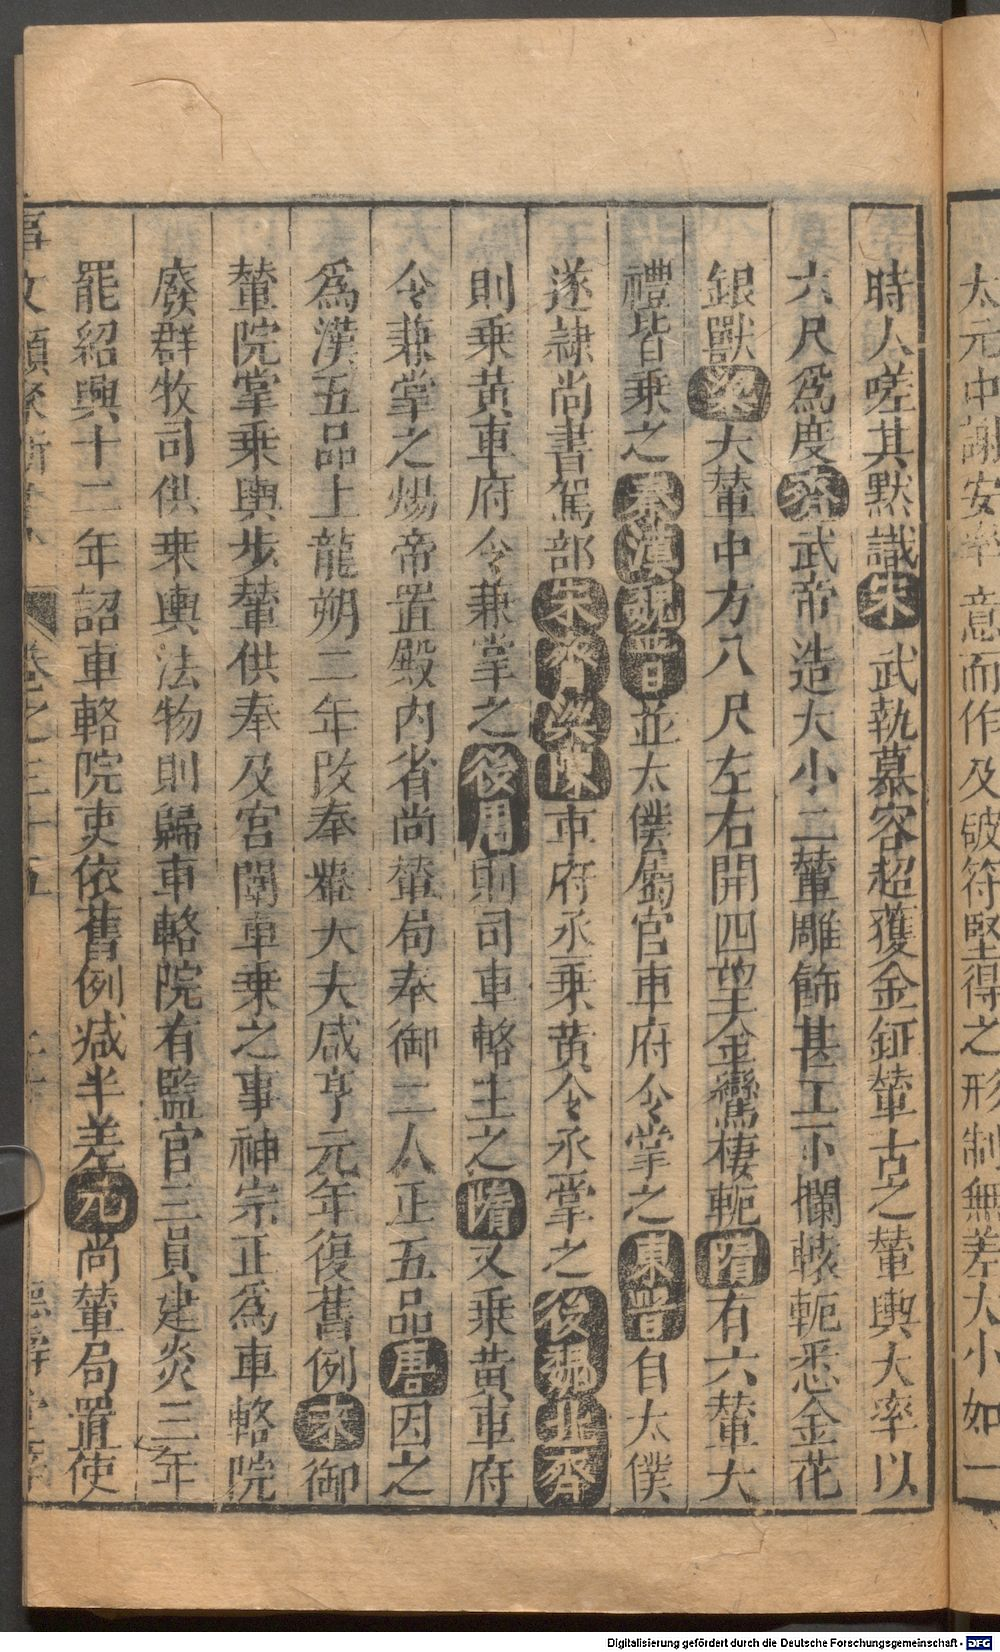 太元中謝安率意而作及破苻堅得之形制無差大小如一
時人嗟其默識宋武執慕容超獲金鉦輦古之輦輿大率以
六尺為度齊武帝造大小二輦雕飾甚工下欄轅軛悉金花
銀獸梁大輦中方八尺左右開四望金鸞棲軛隋有六輦大
禮皆乗之秦漢魏晋並太僕屬官車府令掌之東晋自太僕
遂隷尚書駕部宋齊梁陳車府丞乗黃令丞掌之後魏北齊
則乗黃車府令兼掌之後周則司車輅主之隋又乗黃車府
令兼掌之煬帝置殿内省尚輦局奉御二人正五品唐因之
為漢五品上龍朔二年改奉輦大夫咸亨元年復舊例宋御
輦院掌乗輿步輦供奉及宮闈車乗之事神宗正為車輅院
廢群牧司供乗輿法物則歸車輅院有監官三員建炎三年
罷紹興十二年詔車輅院吏依舊例减半差元尚輦局置使
事文類聚新集 卷之三十五
Digitalisierung gefördert durch die Deutsche Forschungsgemeinschaft - DFG